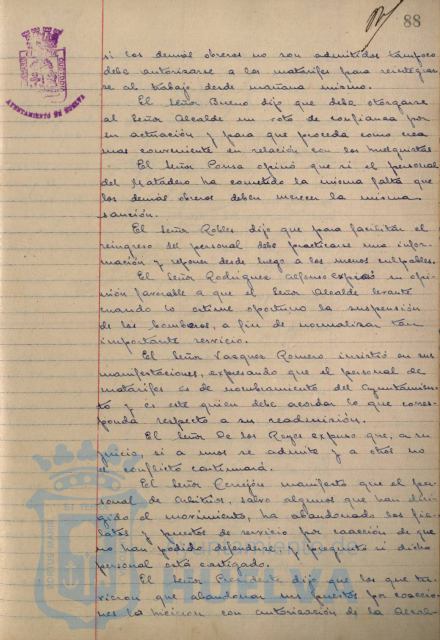 88
si los demás obreros no son admitidos tampoco
debe autorizarse a los matarifes para reintegrar-
se al trabajo desde mañana mismo.
El Señor Bueno dijo que debe otorgarse
al Señor Alcalde un voto de confianza por
su actuación y para que proceda como crea
mas conveniente en relación con los huelguistas.
El Señor Ponsa opinó que si el personal
del Matadero ha cometido la misma falta que
los demás obreros deben merecer la misma
sanción.
El Señor Robles dijo que para facilitar el
reingreso del personal debe practicarse una infor-
mación y reponer desde luego a los menos culpables.
El Señor Rodriguez Alfonso expresó su opi-
nión favorable a que el Señor Alcalde levante
cuando lo estime oportuno la suspensión
de los bomberos, a fin de normalizar tan
importante servicio.
El Señor Vasquez Romero insistió en sus
manifestaciones, expresando que el personal de
matarifes es de nombramiento del Ayuntamien-
to y es este quien debe acordar lo que corres-
ponda respecto a su readmisión.
El Señor De los Reyes expuso que, a su
juicio, si a unos se admite y a otros no
el conflicto continuará.
El Señor Cerrejón manifestó que el per-
sonal de Arbitrios, salvo algunos que han diri-
gido el movimiento, ha abandonado los fie-
latos y puestos de servicio por coacción de que
no han podido defenderse, y preguntó si dicho
personal está castigado.
El Señor Presidente dijo que los que tu-
vieron que abandonar sus puestos por coaccio-
nes lo hicieron con autorización de la Alcal-
AYUNTAMIENTO DE HUELVA